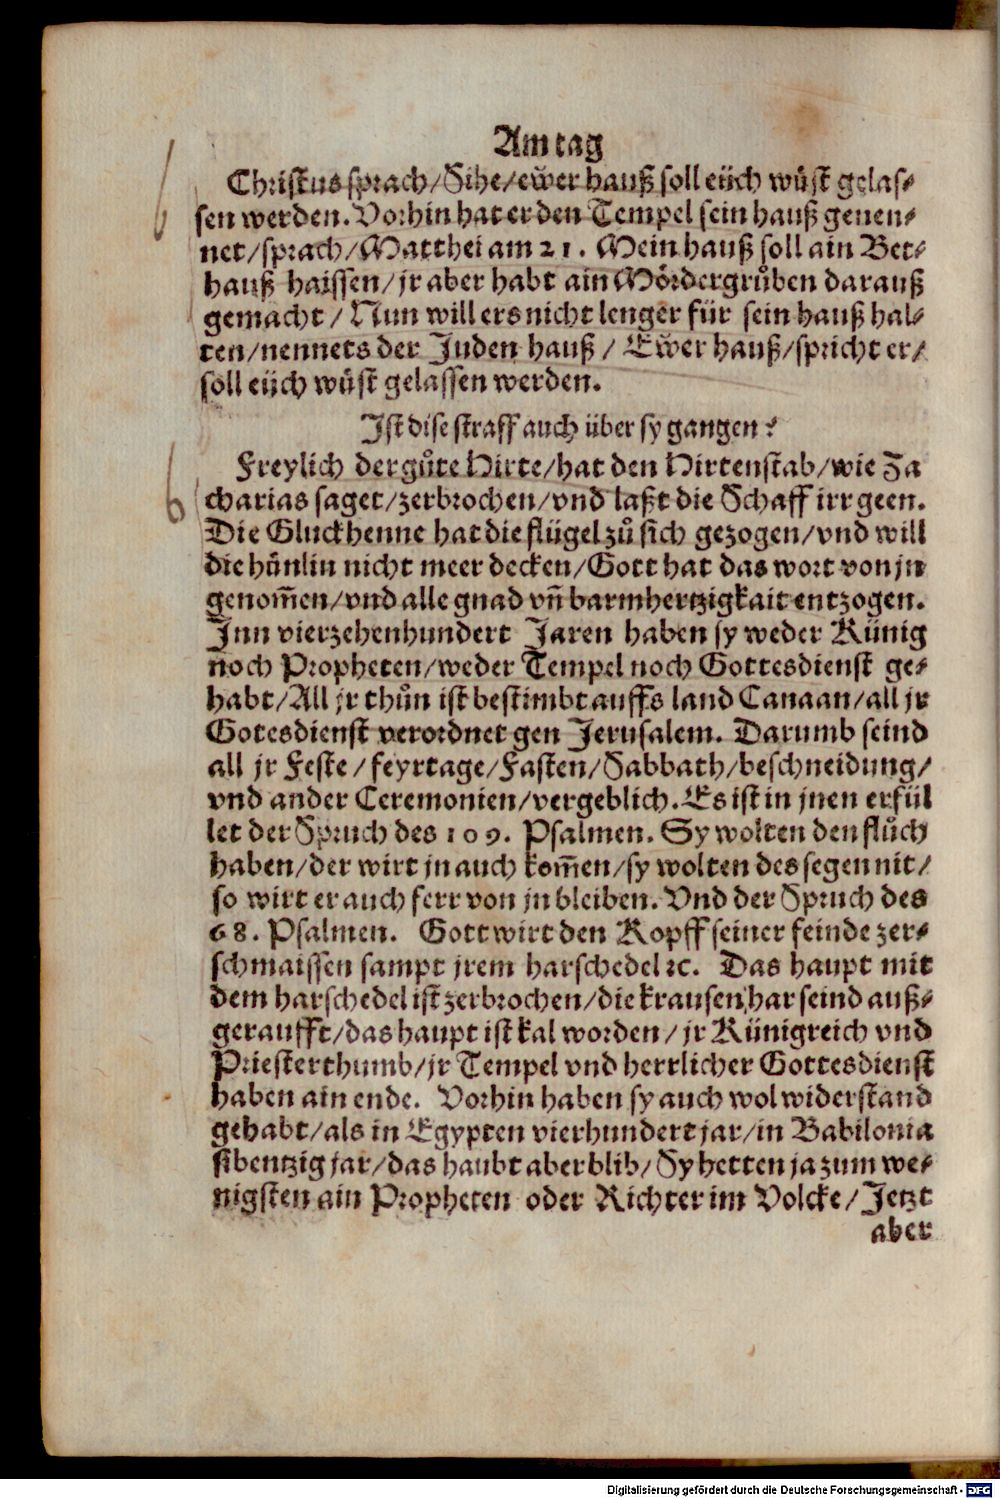 Am tag
Christus sprach/Sihe/eẅer hauß soll eüch wůst gelas⸗
sen werden. Vorhin hat er den Tempel sein hauß genen⸗
net/sprach/Matthei am 21. Mein hauß soll ain Bet⸗
hauß haissen/jr aber habt ain Mördergrůben darauß
gemacht/ Nun will ers nicht lenger für sein hauß hal⸗
ten/nennets der Juden hauß/ Eẅer hauß/spricht er/
soll eüch wůst gelassen werden.
Ist dise straff auch über sy gangen?
Freylich der gůte Hirte/hat den Hirtenstab/wie Za
charias saget/zerbrochen/vnd laßt die Schaff irr geen.
Die Gluckhenne hat die flügel zů sich gezogen/vnd will
die hůnlin nicht meer decken/Gott hat das wort von jn
genom̃en/vnd alle gnad vñ barmhertzigkait entzogen.
Inn vierzehenhundert Jaren haben sy weder Künig
noch Propheten/weder Tempel noch Gottesdienst ge⸗
habt/All jr thůn ist bestimbt auffs land Canaan/all jr
Gotesdienst verordnet gen Jerusalem. Darumb seind
all jr Feste/feyrtage/Fasten/Sabbath/beschneidung/
vnd ander Ceremonien/vergeblich. Es ist in jnen erfül
let der Spruch des 109. Psalmen. Sy wolten den flůch
haben/der wirt jn auch kom̃en/sy wolten des segen nit/
so wirt er auch ferr von jn bleiben. Vnd der Spruch des
68. Psalmen. Gott wirt den Kopff seiner feinde zer⸗
schmaissen sampt jrem harschedel ꝛc. Das haupt mit
dem harschedel ist zerbrochen/die krausen har seind auß⸗
geraufft/das haupt ist kal worden/jr Künigreich vnd
Priesterthumb/jr Tempel vnd herrlicher Gottesdienst
haben ain ende. Vorhin haben sy auch wol widerstand
gehabt/als in Egypten vierhundert jar/in Babilonia
sibentzig jar/das haubt aber blib/Sy hetten ja zum we⸗
nigsten ain Propheten oder Richter im Volcke/Jetzt
aber
Digitalisierung gefördert durch die Deutsche Forschungsgemeinschaft - DFG